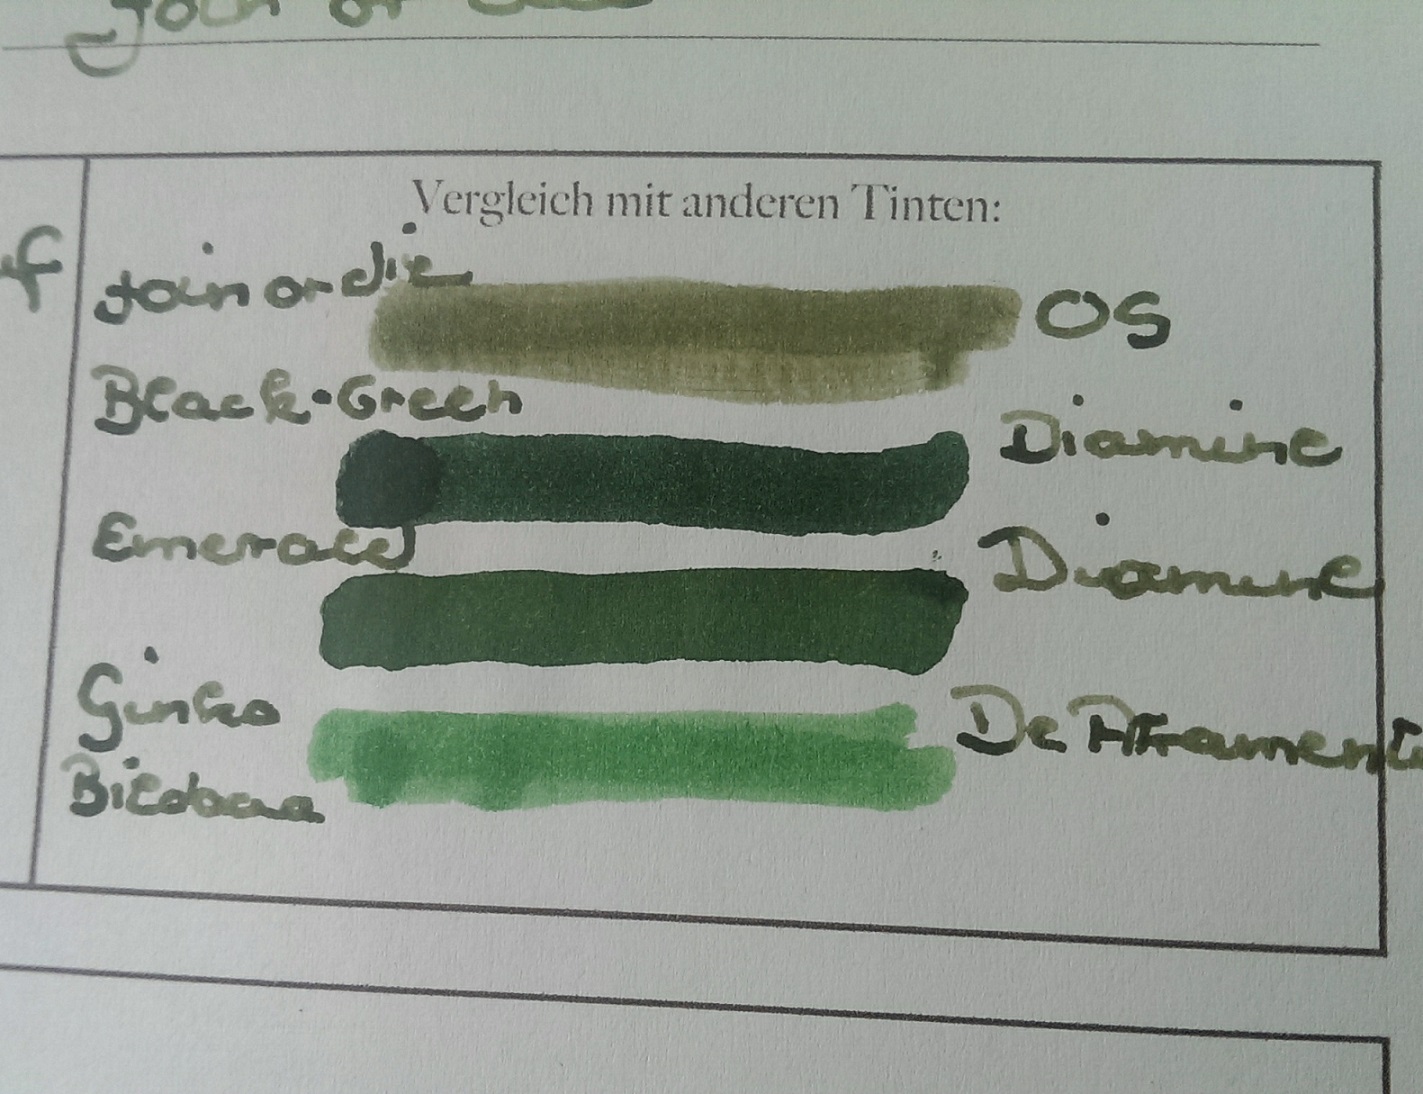 Join or
Vergleich mit anderen Tinten:
Join or die OS
Black-Green Diamine
Emerald Diamine
Ginko De Atramenti
Biloba